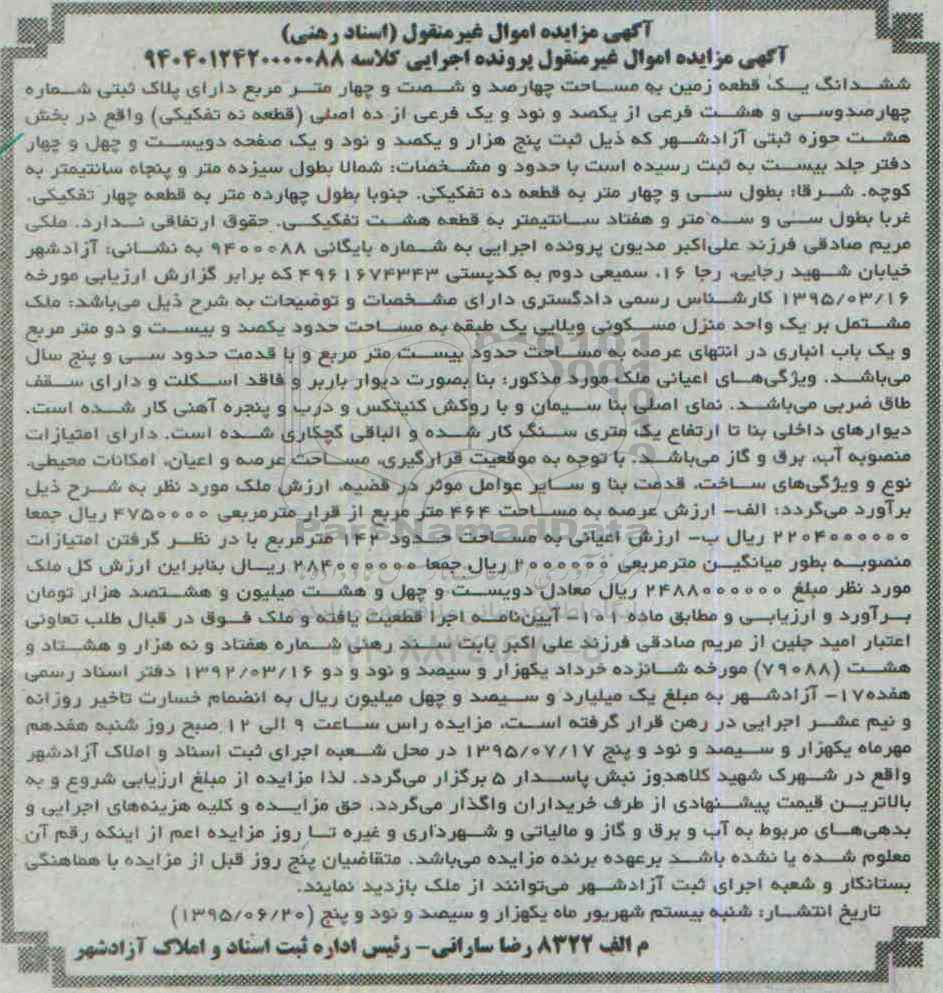 آگهی مزایده اموال غیرمنقول (اسناد رهنی)
آگهی مزایده اموال غیرمنقول پرونده اجرایی کلاسه ۹۴۰۴۰۱۲۴۲۰۰۰۰۰۸۸
ششدانگ یک قطعه زمین به مساحت چهارصد و شصت و چهار متر مربع دارای پلاک ثبتی شماره
چهارصدوسی و هشت فرعی از یکصد و نود و یک فرعی از ده اصلی (قطعه نه تفکیکی) واقع در بخش
هشت حوزه ثبتی آزادشهر که ذیل ثبت پنج هزار و یکصد و نود و یک صفحه دویست و چهل و چهار
دفتر جلد بیست به ثبت رسیده است با حدود و مشخصات: شمالا بطول سیزده متر و پنجاه سانتیمتر به
کوچه. شرقا: بطول سی و چهار متر به قطعه ده تفکیکی. جنوبا بطول چهارده متر به قطعه چهار تفکیکی.
غربا بطول سی و سه متر و هفتاد سانتیمتر به قطعه هشت تفکیکی. حقوق ارتفاقی ندارد. ملکی
مریم صادقی فرزند علی‌اکبر مدیون پرونده اجرایی به شماره بایگانی ۹۴۰۰۰۸۸ به نشانی: آزادشهر
خیابان شهید رجایی، رجا ۱۶، سمیعی دوم به کدپستی ۴۹۶۱۶۷۴۳۴۳ که برابر گزارش ارزیابی مورخه
۱۳۹۵/۰۳/۱۶ کارشناس رسمی دادگستری دارای مشخصات و توضیحات به شرح ذیل می‌باشد: ملک
مشتمل بر یک واحد منزل مسکونی ویلایی یک طبقه به مساحت حدود یکصد و بیست و دو متر مربع
و یک باب انباری در انتهای عرصه به مساحت حدود بیست متر مربع و با قدمت حدود سی و پنج سال
می‌باشد. ویژگی‌های اعیانی ملک مورد مذکور: بنا بصورت دیوار باربر و فاقد اسکلت و دارای سقف
طاق ضربی می‌باشد. نمای اصلی بنا سیمان و با روکش کنیتکس و درب و پنجره آهنی کار شده است.
دیوارهای داخلی بنا تا ارتفاع یک متری سنگ کار شده و الباقی گچکاری شده است. دارای امتیازات
منصوبه آب، برق و گاز می‌باشد. با توجه به موقعیت قرارگیری، مساحت عرصه و اعیان، امکانات محیطی،
نوع و ویژگی‌های ساخت، قدمت بنا و سایر عوامل موثر در قضیه، ارزش ملک مورد نظر به شرح ذیل
برآورد می‌گردد: الف- ارزش عرصه به مساحت ۴۶۴ متر مربع از قرار مترمربعی ۴۷۵۰۰۰۰ ریال جمعا
۲۲۰۴۰۰۰۰۰۰ ریال ب- ارزش اعیانی به مساحت حدود ۱۴۲ مترمربع با در نظر گرفتن امتیازات
منصوبه بطور میانگین مترمربعی ۲۰۰۰۰۰۰ ریال جمعا ۲۸۴۰۰۰۰۰۰ ریال بنابراین ارزش کل ملک
مورد نظر مبلغ ۲۴۸۸۰۰۰۰۰۰ ریال معادل دویست و چهل و هشت میلیون و هشتصد هزار تومان
برآورد و ارزیابی و مطابق ماده ۱۰۱- آیین‌نامه اجرا قطعیت یافته و ملک فوق در قبال طلب تعاونی
اعتبار امید جلین از مریم صادقی فرزند علی اکبر بابت سند رهنی شماره هفتاد و نه هزار و هشتاد و
هشت (۷۹۰۸۸) مورخه شانزده خرداد یکهزار و سیصد و نود و دو ۱۳۹۲/۰۳/۱۶ دفتر اسناد رسمی
هفده۱۷- آزادشهر به مبلغ یک میلیارد و سیصد و چهل میلیون ریال به انضمام خسارت تاخیر روزانه
و نیم عشر اجرایی در رهن قرار گرفته است، مزایده راس ساعت ۹ الی ۱۲ صبح روز شنبه هفدهم
مهرماه یکهزار و سیصد و نود و پنج ۱۳۹۵/۰۷/۱۷ در محل شعبه اجرای ثبت اسناد و املاک آزادشهر
واقع در شهرک شهید کلاهدوز نبش پاسدار ۵ برگزار می‌گردد. لذا مزایده از مبلغ ارزیابی شروع و به
بالاترین قیمت پیشنهادی از طرف خریداران واگذار می‌گردد. حق مزایده و کلیه هزینه‌های اجرایی و
بدهی‌های مربوط به آب و برق و گاز و مالیاتی و شهرداری و غیره تا روز مزایده اعم از اینکه رقم آن
معلوم شده یا نشده باشد برعهده برنده مزایده می‌باشد. متقاضیان پنج روز قبل از مزایده با هماهنگی
بستانکار و شعبه اجرای ثبت آزادشهر می‌توانند از ملک بازدید نمایند.
تاریخ انتشار: شنبه بیستم شهریور ماه یکهزار و سیصد و نود و پنج (۱۳۹۵/۰۶/۲۰)
م الف ۸۳۲۲ رضا سارانی- رئیس اداره ثبت اسناد و املاک آزادشهر
ParsNamadData